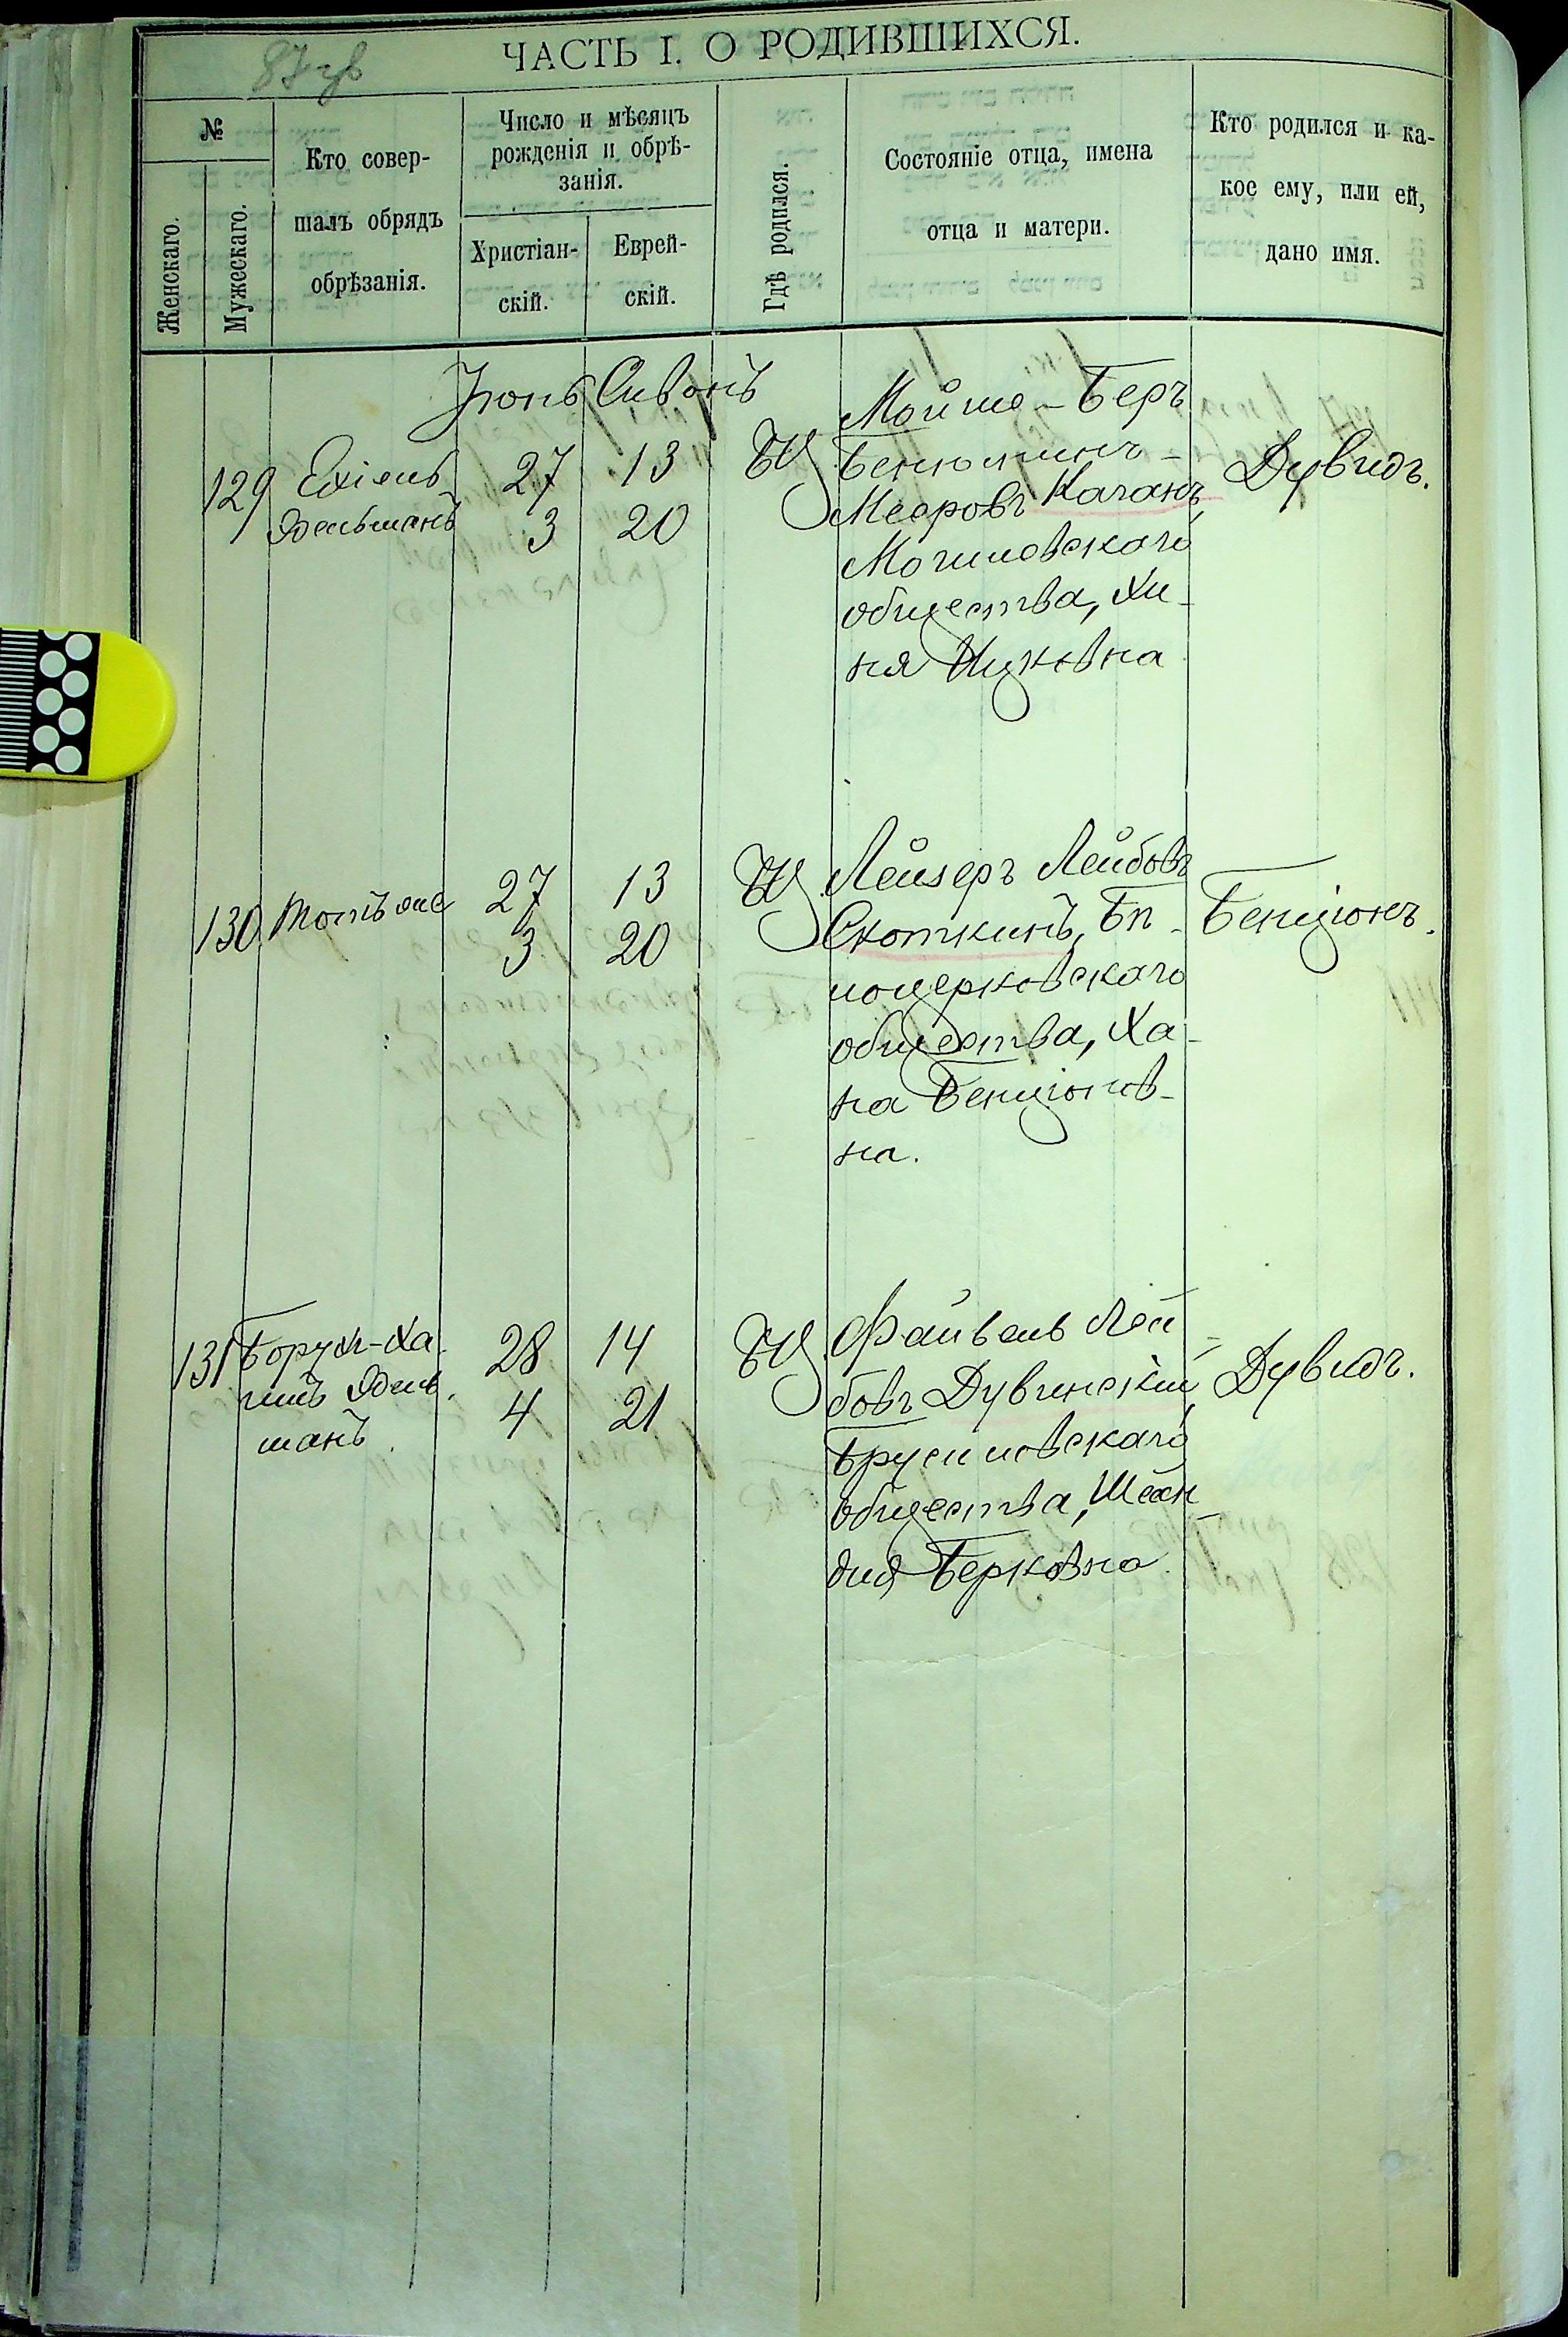 87
ЧАСТЬ I. О РОДИВШИХСЯ.
№
Женскаго.
Мужескаго.
Кто совер-
шалъ обрядъ
обрѣзанія.
Число и мѣсяцъ
рожденія и обрѣ-
занія.
Христіан-
скій.
Еврей-
скій.
Гдѣ родился.
Состояніе отца, имена
отца и матери.
Кто родился и ка-
кое ему, или ей,
дано имя.
Іюнь Сивонъ
129
Ехіель
Эдельманъ
27 13
3 20
Мойше-Беръ
Беньюминъ-
Мееровъ Каганъ,
Могилевскаго
общества, Хи-
ня Ицковна
Дувидъ.
130
Тотъ же
27 13
3 20
Лейзеръ Лейбовъ
Скоткинъ, Бѣ-
лоцерковскаго
общества, Ха-
на Бенціонов-
на.
Бенціонъ.
131
Борухъ-Ха
имъ Эдель-
манъ
28 14
4 21
Файвель Лей-
бовъ Дувинскій,
Брусиловскаго
общества, Шейн
для Берковна.
Дувидъ.